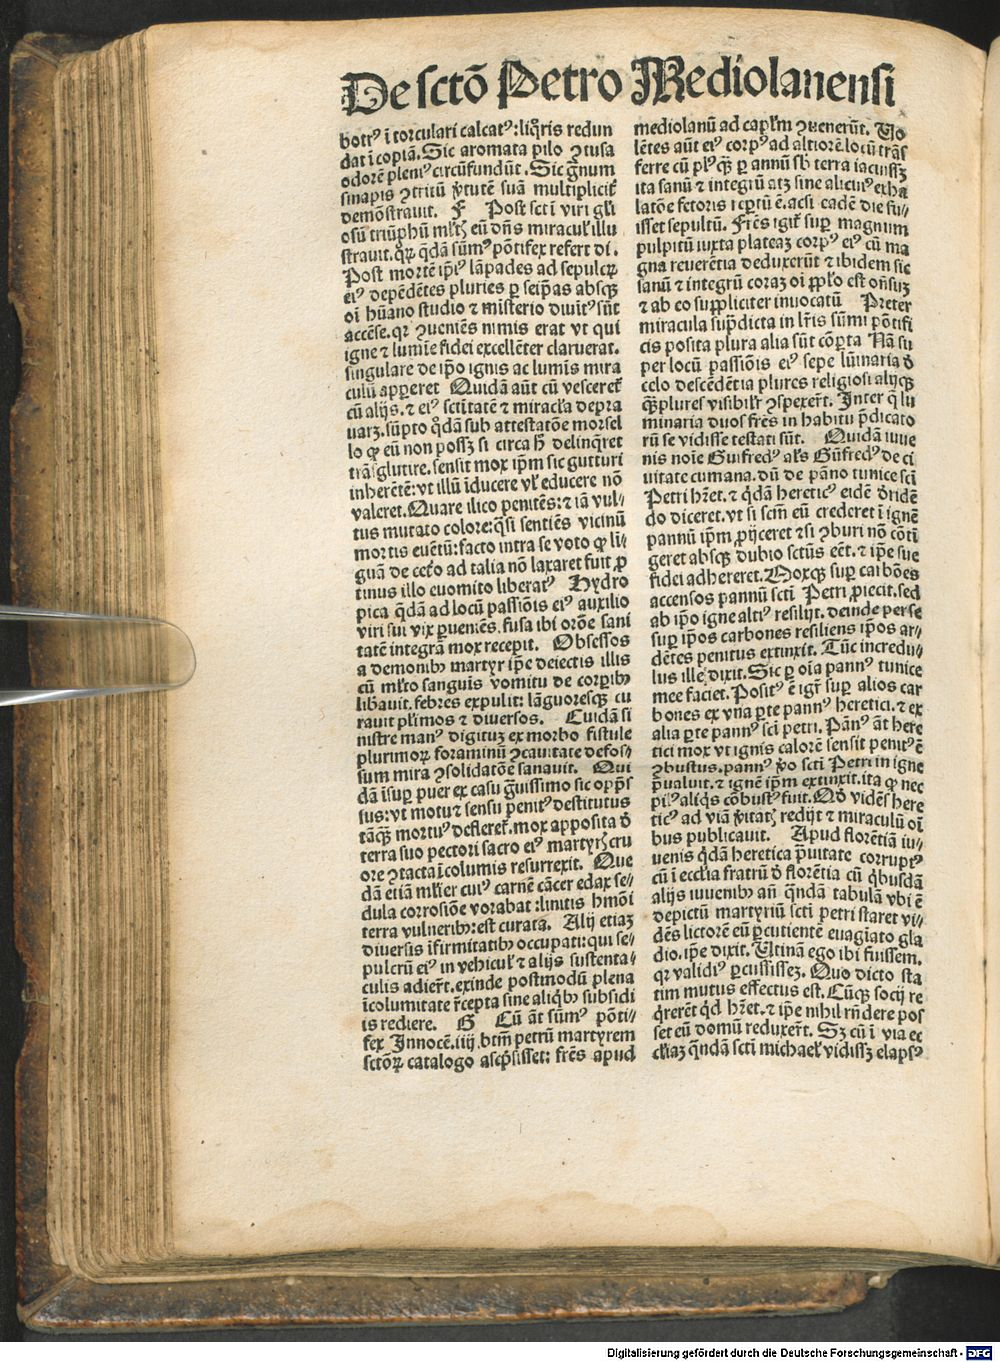 De sctō Petro Mediolanensi
botrꝰ ī torculari calcatꝰ: liq̄ris redun
dat ī copiā. Sic aromata pilo ꝯtusa
odorē pleniꝰ circūfundūt. Sic grānum
sinapis ꝯtritū v̄tutē suā multipliciť
demōstrauit. F Post scti viri gl̄i
osū triūphū ml̄tꝭ eū dn̄s miracul̄ illu
strauit. qꝝ q̄dā sūmꝰ pōtifex refert di.
Post mortē ip̄iꝰ lāpades ad sepulcꝝ
eiꝰ depēdētes pluries ꝑ seip̄as absqꝫ
oī hūano studio ⁊ misterio diuitꝰ sūt
accēse. qꝛ ꝯueniēs nimis erat vt qui
igne ⁊ lumīe fidei excellēter claruerat.
singulare de ip̄o ignis ac lumīs mira
culū apꝑeret Quidā aūt cū vescereť
cū alijs. ⁊ eiꝰ sctītatē ⁊ miracl̄a depra
uarꝫ. sūpto q̄dā sub attestatōe morsel
lo ꝙ eū non possꝫ si circa h̄ delinq̄ret
trāsglutire. sensit mox ip̄m sic gutturi
inherētē: vt illū īducere vl̄ educere nō
valeret. Quare ilico penitēs: ⁊ iā vul-
tus mutato colore: q̄si sentiēs vicinū
mortis euētū: facto intra se voto ꝙ lī-
guā de ceťo ad talia nō laxaret fuit ꝓ
tinus illo euomito liberatꝰ Hydro
pica q̄dā ad locū passiōis eiꝰ auxilio
viri sui vix ꝑueniēs. fusa ibi orōe sani
tatē integrā mox recepit. Obsessos
a demonibꝫ martyr ip̄e deiectis illis
cū ml̄to sanguīs vomitu de corꝑibꝫ
liƀauit. febres expulit: lāguoresqꝫ cu
rauit pl̄imos ⁊ diuersos. Cuidā si
nistre manꝰ digituꝫ ex morbo fistule
plurimoꝝ foraminū ꝯcauitate defos-
sum mira ꝯsolidatōe sanauit. Qui
dā īsuꝑ puer ex casu grāuissimo sic opp̄s
sus: vt motu ⁊ sensu penitꝰ destitutus
tāqꝫ mortuꝰ defleret. mox apposita đ
terra suo pectori sacro eiꝰ martyrꝭ cru
ore ꝯtacta īcolumis resurrexit. Que
dā etiā ml̄ier cuiꝰ carnē cācer edax se-
dula corrosiōe vorabat: linitis hm̄ōi
terra vulneribꝫ: est curata. Alij etiaꝫ
diuersis īfirmitatibꝫ occupati: qui se-
pulcrū eiꝰ in vehicul̄ ⁊ alijs sustenta-
culis adierūt. exinde postmodū plena
īcolumitate r̄cepta sine aliq̄bꝫ subsidi
is rediere. G Cū āt sūmꝰ pōti-
fex Innocē. iiij. btm̄ petrū martyrem
sctōꝝ catalogo ascp̄sisset: fr̄es apud
mediolanū ad capl̄m ꝯuenerūt. Vo
lētes aūt eiꝰ corpꝰ ad altiorē locū trās
ferre cū plꝰqꝫ ꝑ annū sƀ terra iacuissꝫ
ita sanū ⁊ integrū atqꝫ sine alicuiꝰ exha
latōe fetoris reꝑtū ē. acsi eadē die fu-
isset sepultū. Fr̄es igiť suꝑ magnum
pulpitū iuxta plateaꝫ corpꝰ eiꝰ cū ma
gna reuerētia deduxerūt ⁊ ibidem sic
sanū ⁊ integrū coraꝫ oī ppl̄o est on̄suꝫ
⁊ ab eo suppliciter inuocatū Preter
miracula sup̄dicta in lr̄is sūmi pōtifi
cis posita plura alia sūt cōꝑta Nā su
per locū passiōis eiꝰ sepe lūinaria đ
celo descēdētia plures religiosi alijqꝫ
qꝫplures visibilr̄ ꝯspexer̄t. Inter q̄ lu
minaria duos fr̄es in habitu p̄dicato
rū se vidisse testati sūt. Quidā iuue
nis noīe Guifredꝰ als̄ Gūfredꝰ de ci
uitate cumana. dū de pāno tunice sci
Petri hr̄et. ⁊ q̄dā hereticꝰ eidē đridē
do diceret. vt si scm̄ eū crederet ī ignē
pannū ip̄m ꝓijceret ⁊ si ꝯburi nō cōti
geret absqꝫ dubio sctūs eēt. ⁊ ip̄e sue
fidei adhereret. Moxqꝫ suꝑ carbōes
accensos pannū scti Petri ꝓiecit. sed
ab ip̄o igne altiꝰ resilijt. deinde per se
suꝑ ip̄os carbones resiliens ip̄os ar-
dētes penitus extinxit. Tūc incredu-
lus ille dixit. Sic ꝑ oīa pannꝰ tunice
mee faciet. Positꝰ ē igr̄ suꝑ alios car
bones ex vna ꝑte pannꝰ heretici. ⁊ ex
alia ꝑte pannꝰ sci petri. Pānꝰ āt here
tici mox vt ignis calorē sensit penitꝰ ē
ꝯbustus. pannꝰ v̄o scti Petri in igne
p̄ualuit. ⁊ ignē ip̄m extinxit. ita ꝙ nec
pilꝰ aliq̄s cōbustꝰ fuit. Qđ vidēs here
ticꝰ ad viā v̄itatꝭ redijt ⁊ miraculū oī
bus publicauit. Apud florētiā iu-
uenis q̄dā heretica p̄uitate corruptꝰ
cū ī ecclia fratrū đ florētia cū q̄busdā
alijs iuuenibꝫ an̄ q̄ndā tabulā vbi ē
depictū martyriū scti petri staret vi-
dēs lictorē eū ꝑcutientē euagiato gla
dio. ip̄e dixit. Vtinā ego ibi fuissem.
qꝛ validiꝰ ꝑcussisseꝫ. Quo dicto sta
tim mutus effectus est. Cūqꝫ socij re
q̄rerēt q̄d hr̄et. ⁊ ip̄e nihil rn̄dere pos
set eū domū reduxer̄t. Sꝫ cū ī via ec
cl̄iaꝫ q̄ndā scti michael̄ vidissꝫ elapsꝰ
Digitalisierung gefördert durch die Deutsche Forschungsgemeinschaft - DFG